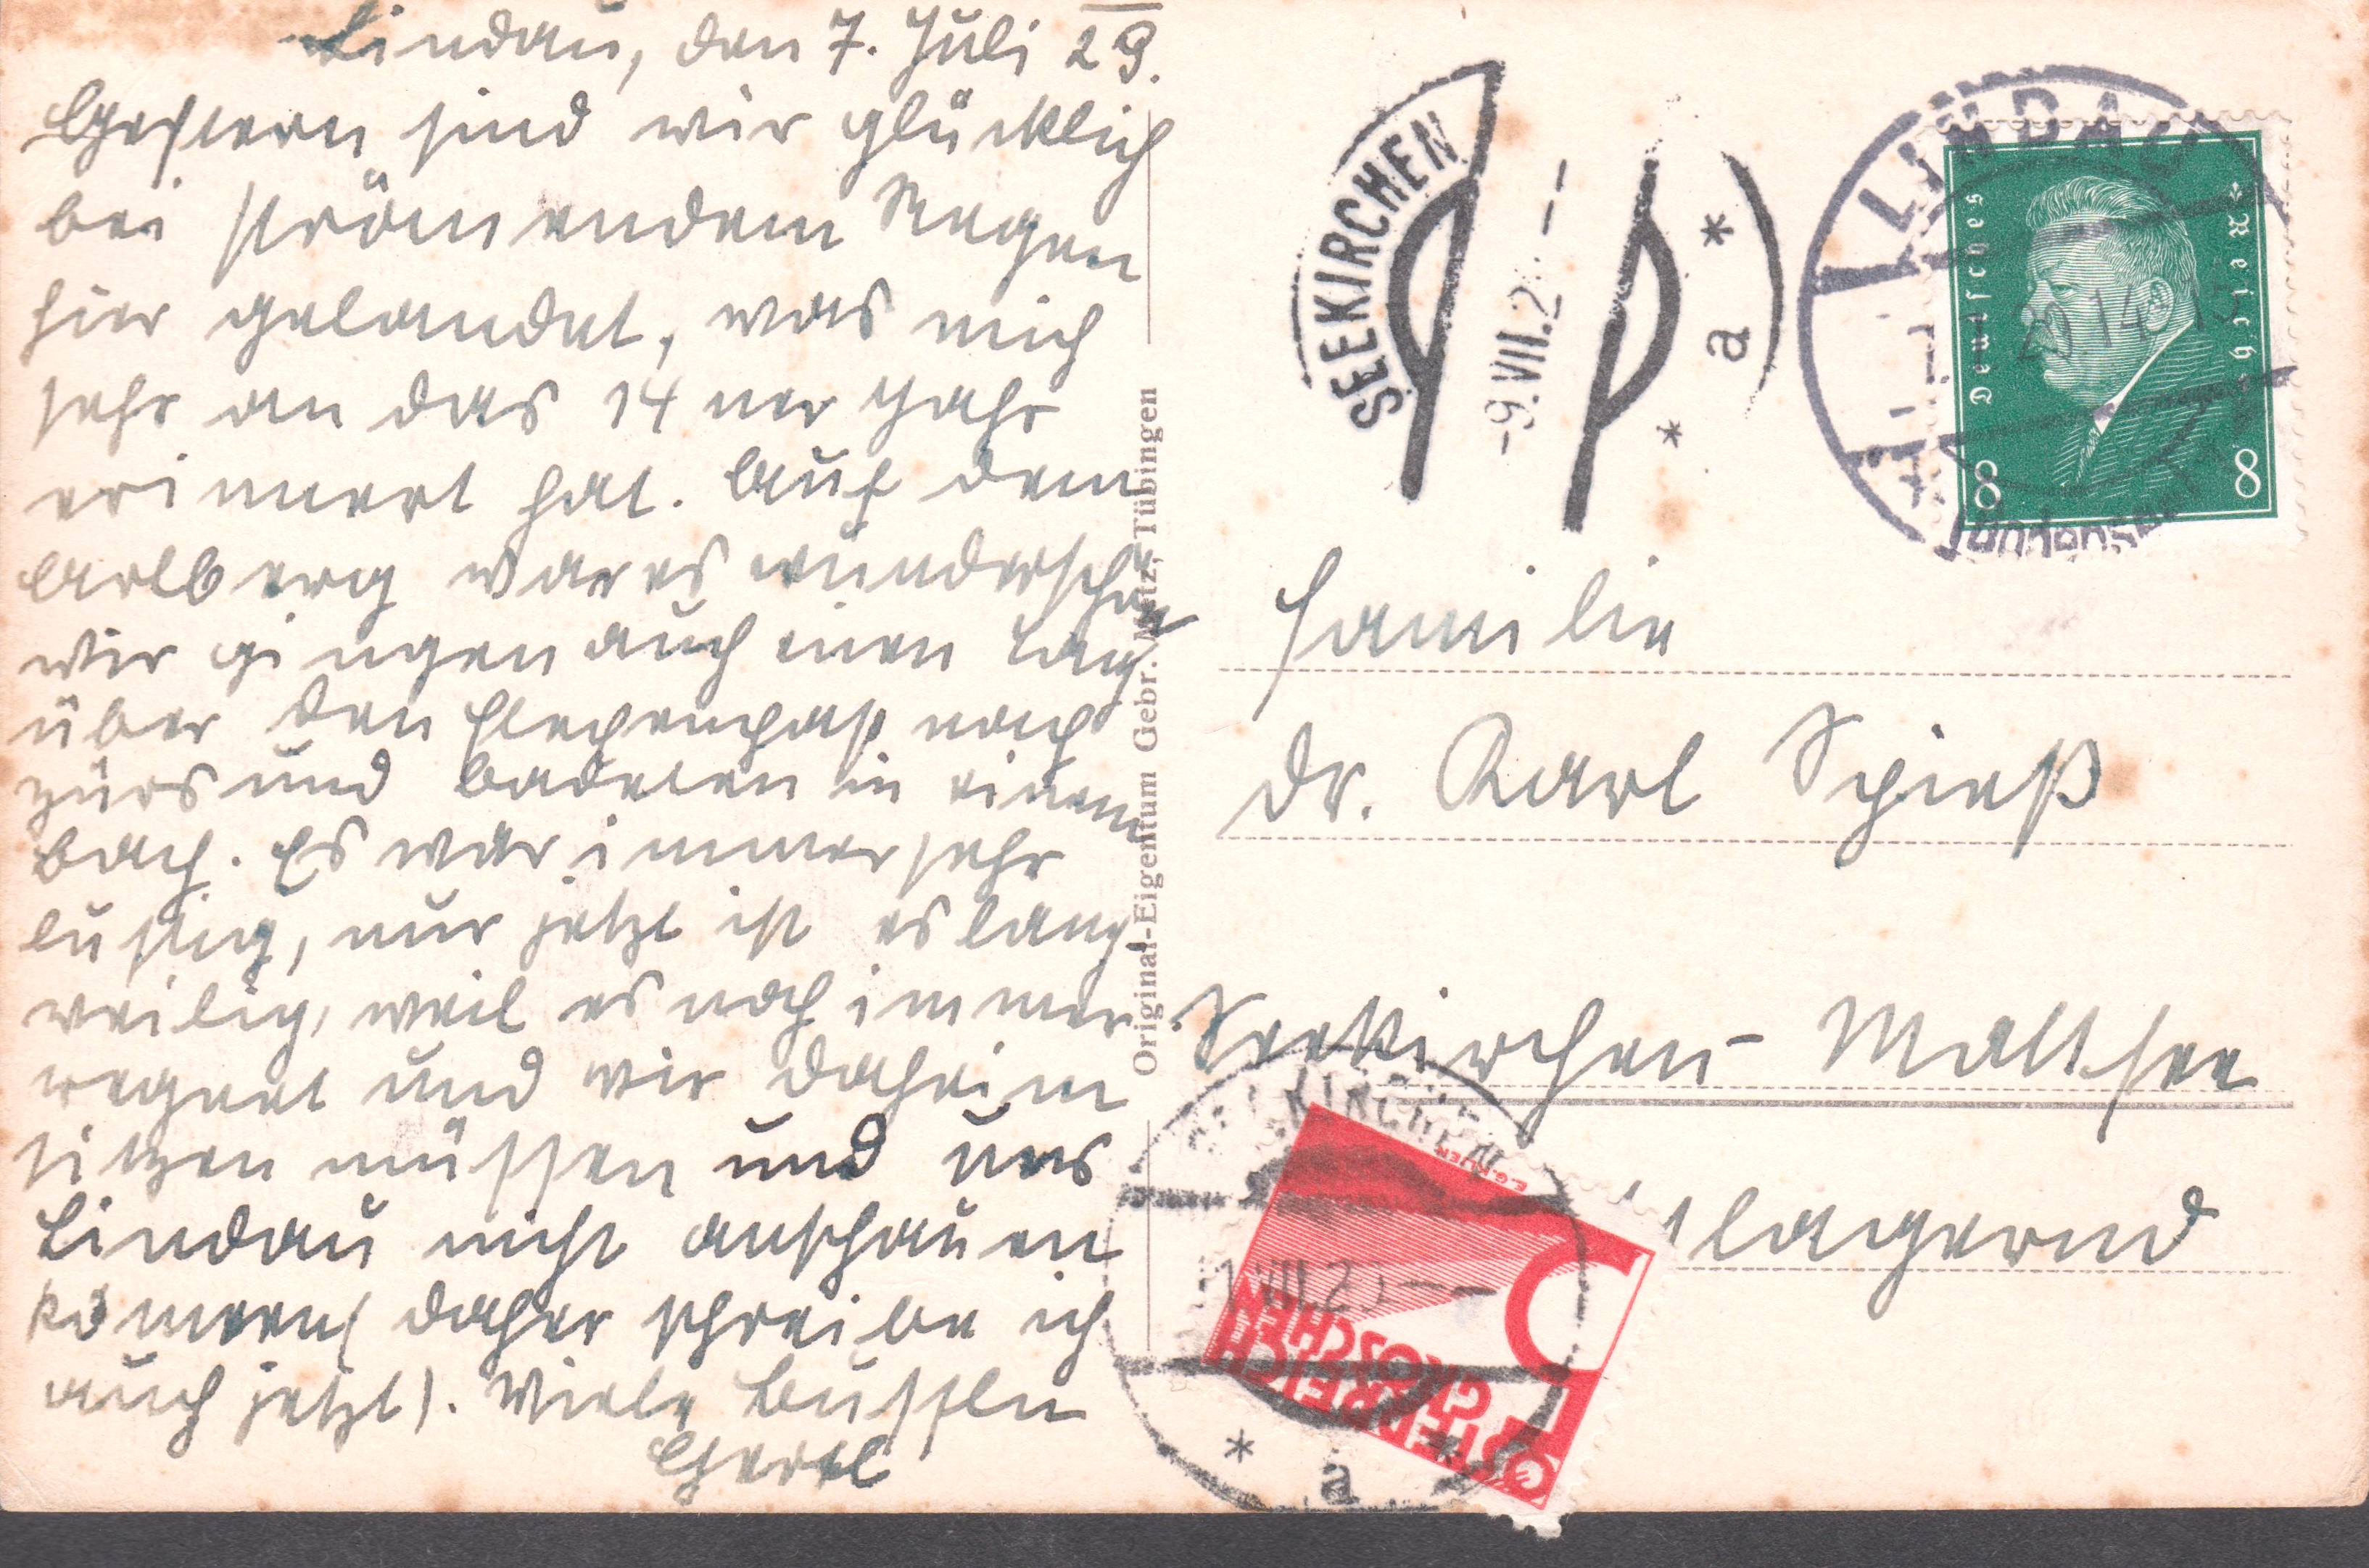 Lindau, den 7. Juli 29.
Gestern sind wir glücklich
bei strömendem Regen
hier gelandet, was mich
sehr an das 14ner Jahr
erinnert hat. Auf dem
Arlberg war es wunderschön
wir gingen auch einen Tag
über den Flexenpaß nach
Zürs und badeten in einem
Bach. Es war immer sehr
lustig, nur jetzt ist es lang
weilig, weil es noch immer
regnet und wir daheim
sitzen müssen und uns
Lindau nicht anschauen
können (daher schreibe ich
auch jetzt). Viele Bussln
Gertl
Original-Eigentum Gebr. Metz, Tübingen
SEEKIRCHEN
-9.VIII.2
* a *
LINDAU
29.14
Deutsches Reich
8 8
Familie
Dr. Karl Spieß
Seekirchen-Mattsee
lagernd
SEEKIRCHEN
VII.2
* a *
ÖSTERREICH
GROSCHEN